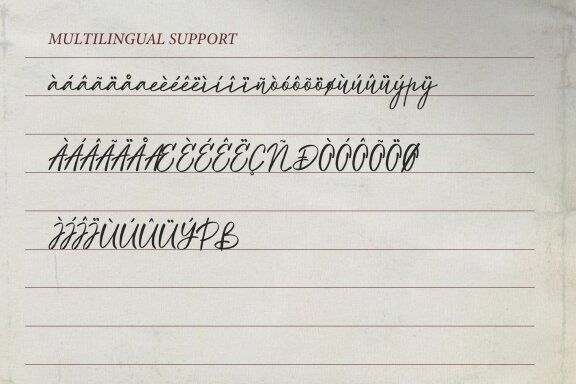 MULTILINGUAL SUPPORT
àáâãäåæèéêëìíîïñòóôõöøùúûüýþÿ
ÀÁÂÃÄÅÆÈÉÊËÇÑÐÒÓÔÕÖØ
ÌÍÎÏÙÚÛÜÝÞß